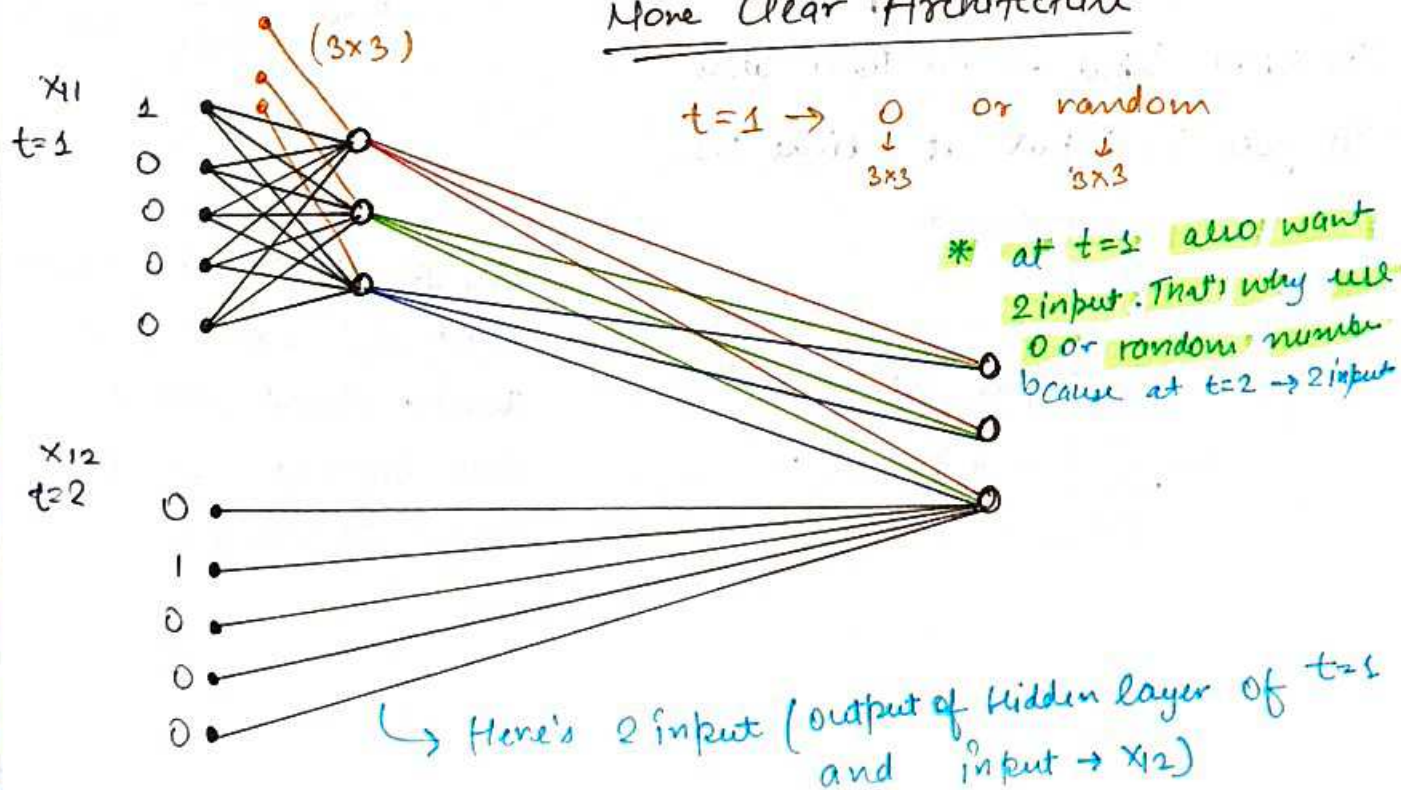 More Clear Architecture
(3x3)
X11
t=1
1
0
0
0
0
t=1 → 0 or random
↓ ↓
3x3 3x3
* at t=1 also want
2 input. That's why use
0 or random number
bcause at t=2 → 2 input
X12
t=2
0
1
0
0
0
↳ Here's 2 input (output of Hidden layer of t=1
and input → X12)